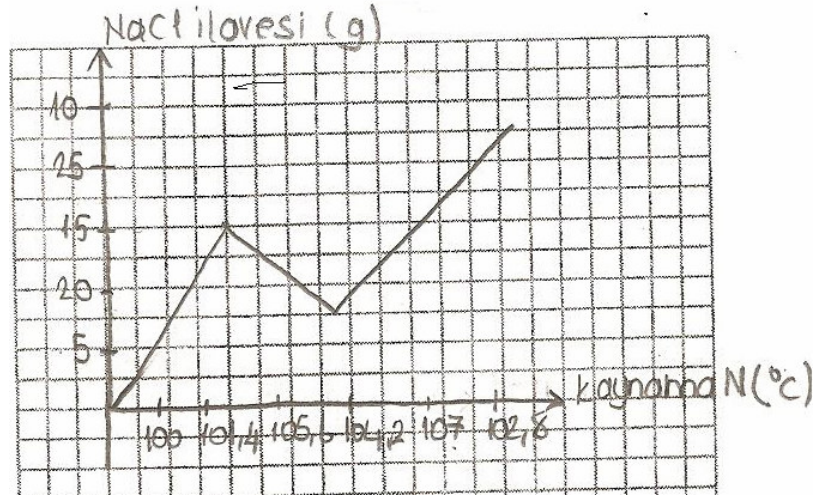 NaCl ilavesi (g)
10
25
15
20
5
100 101,4 105,6 104,2 107 102,8
kaynama N(°C)